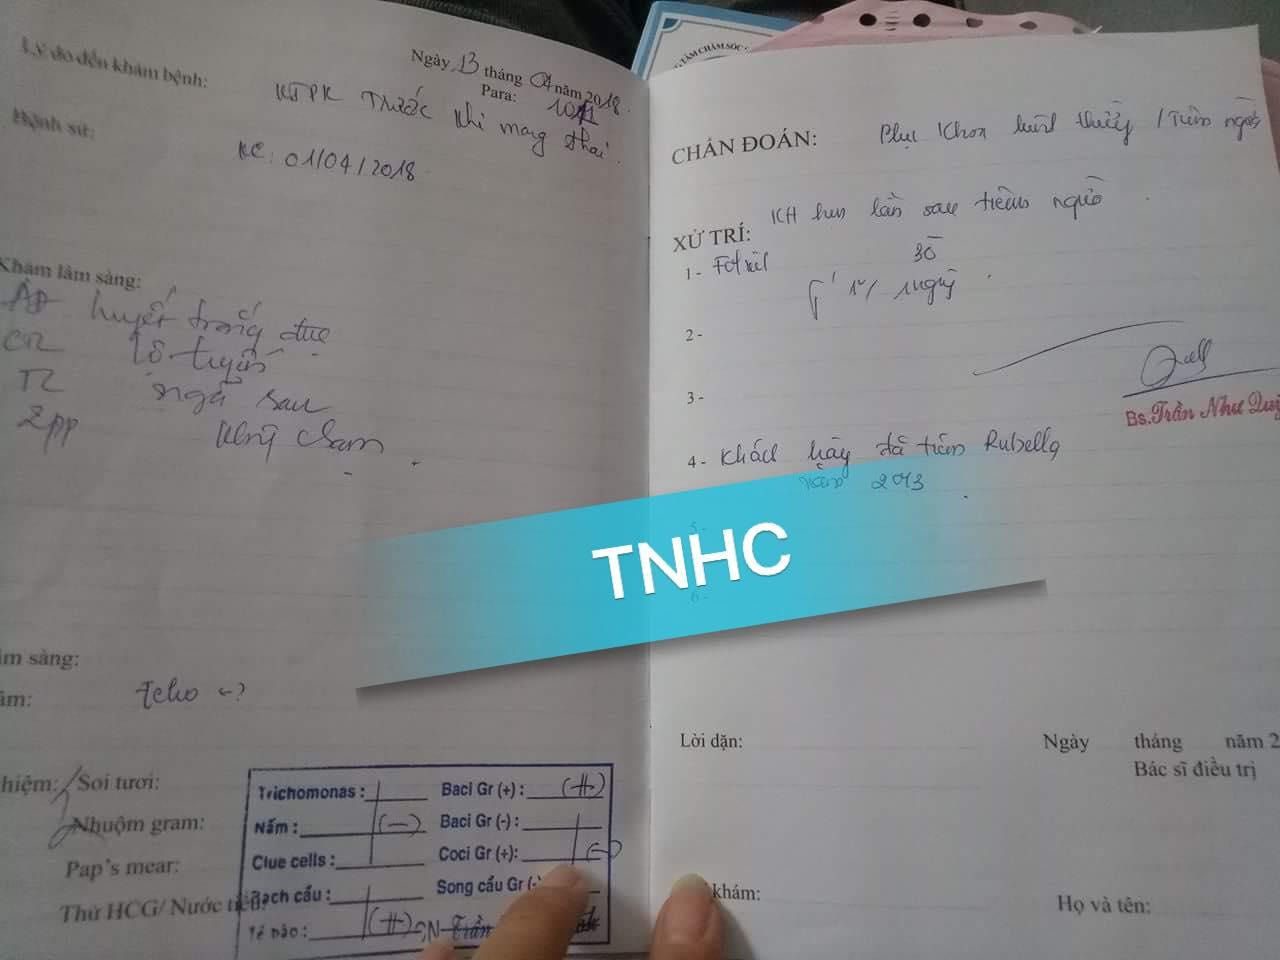 Ngày 13 tháng 04 năm 2018.
Lý do đến khám bệnh:
Para:
KTPK Trước khi mang thai.
Bệnh sử:
KC: 01/04/2018
Khám lâm sàng:
ÂĐ huyết trắng đục
CTC lộ tuyến
TC ngã sau
2pp không chạm.
âm sàng:
âm: Echo
hiệm: Soi tươi:
Nhuộm gram:
Pap's mear:
Thử HCG/ Nước tiểu
Trichomonas :
Nấm : (-)
Clue cells :
Bạch cầu :
Tế bào : (++)
Baci Gr (+) : (++)
Baci Gr (-) :
Coci Gr (+): (-)
Song cầu Gr (-)
CN Trần
TÂM CHĂM SÓC
CHẨN ĐOÁN: Phụ khoa bình thường / Tiêm ngừa
XỬ TRÍ: KH hẹn lần sau tiêm ngừa.
1- 30
1 ngày.
2-
3-
Bs.Trần Như
4- Khách hàng đã tiêm Rubella
năm 2013.
5-
6-
TNHC
Lời dặn:
Ngày tháng năm 2
Bác sĩ điều trị
khám:
Họ và tên: